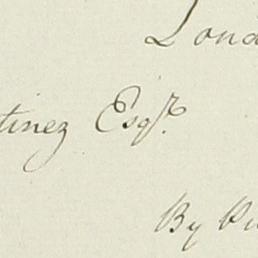 Lond
tinez Esqr.
By